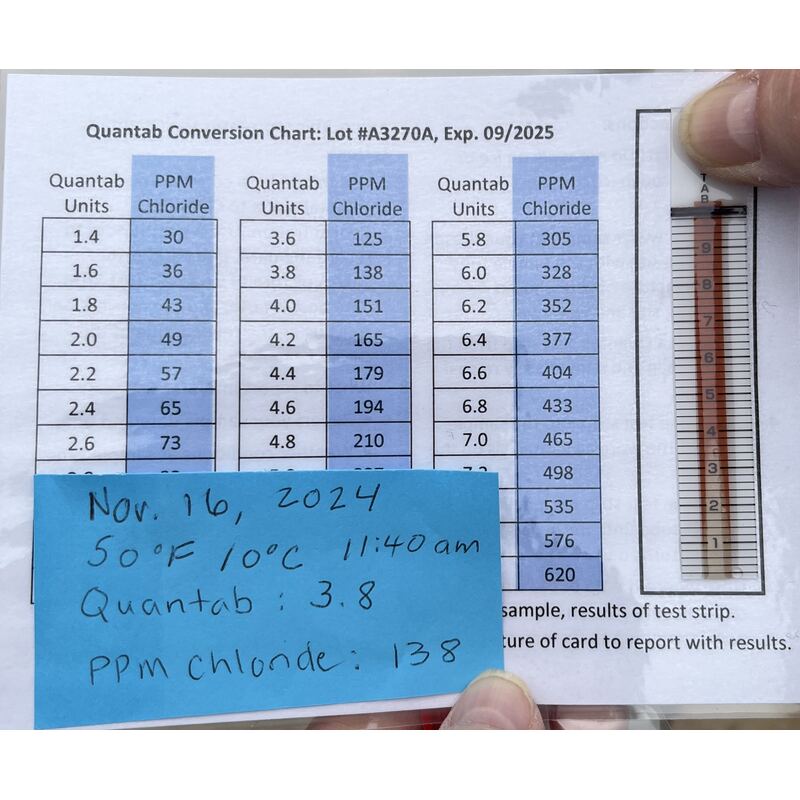 Quantab Conversion Chart: Lot #A3270A, Exp. 09/2025
Quantab Units PPM Chloride Quantab Units PPM Chloride Quantab Units PPM Chloride
1.4 30 3.6 125 5.8 305
1.6 36 3.8 138 6.0 328
1.8 43 4.0 151 6.2 352
2.0 49 4.2 165 6.4 377
2.2 57 4.4 179 6.6 404
2.4 65 4.6 194 6.8 433
2.6 73 4.8 210 7.0 465
498
535
576
620
Nov. 16, 2024
50°F 10°C 11:40 am
Quantab : 3.8
PPm chloride: 138
sample, results of test strip.
ture of card to report with results.
TAB
9
8
7
6
5
4
3
2
1